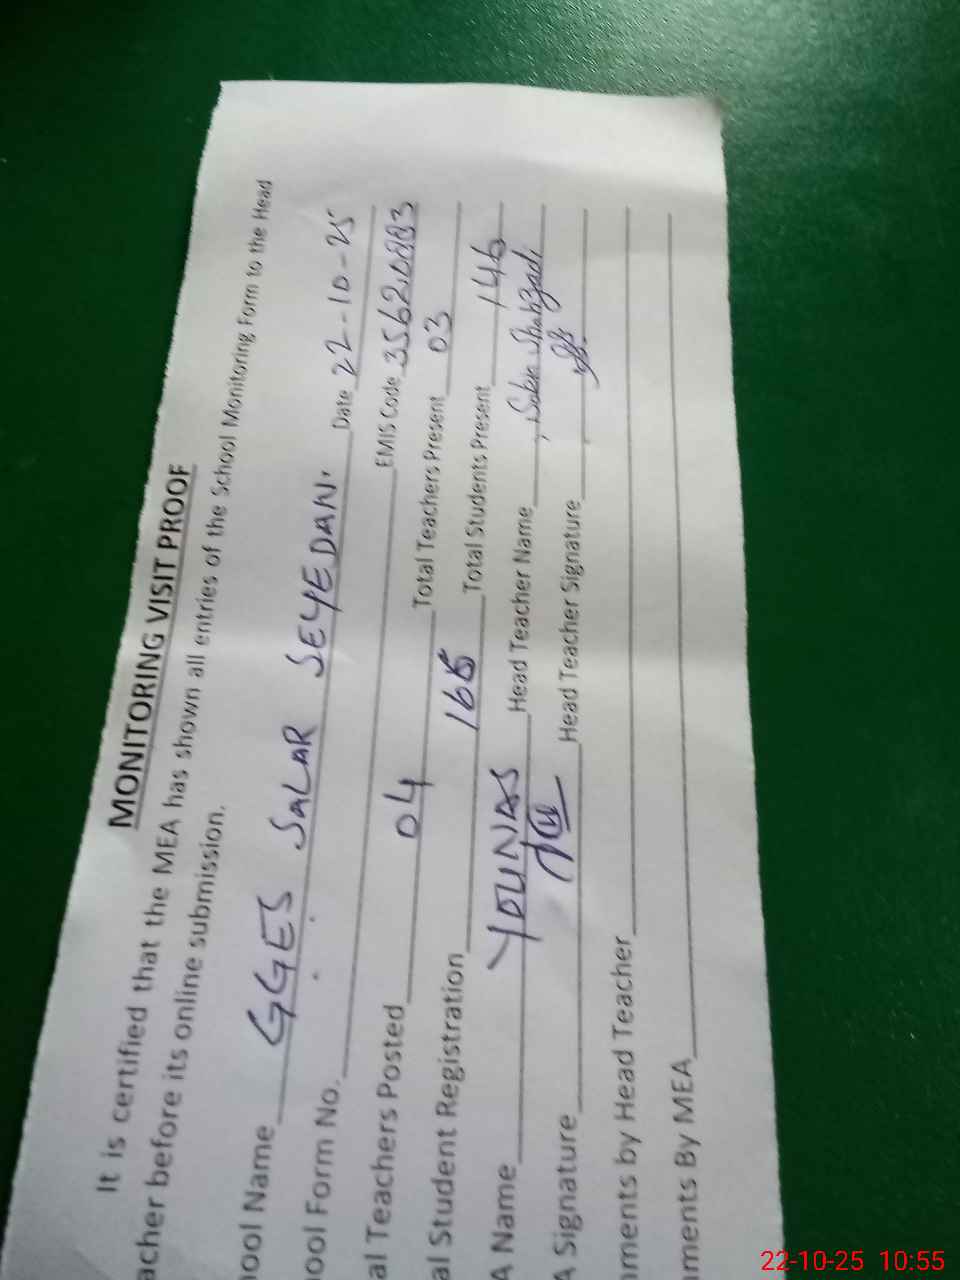 MONITORING VISIT PROOF
It is certified that the MEA has shown all entries of the School Monitoring Form to the Head
acher before its online submission.
ool Name GGES SALAR SEYEDAN. Date 22-10-25
ool Form No. EMIS Code 35620883
al Teachers Posted 04 Total Teachers Present 03
al Student Registration Total Students Present 146
A Name YOUNAS Head Teacher Name Shahzadi
A Signature Head Teacher Signature
mments by Head Teacher
mments By MEA
22-10-25 10:55